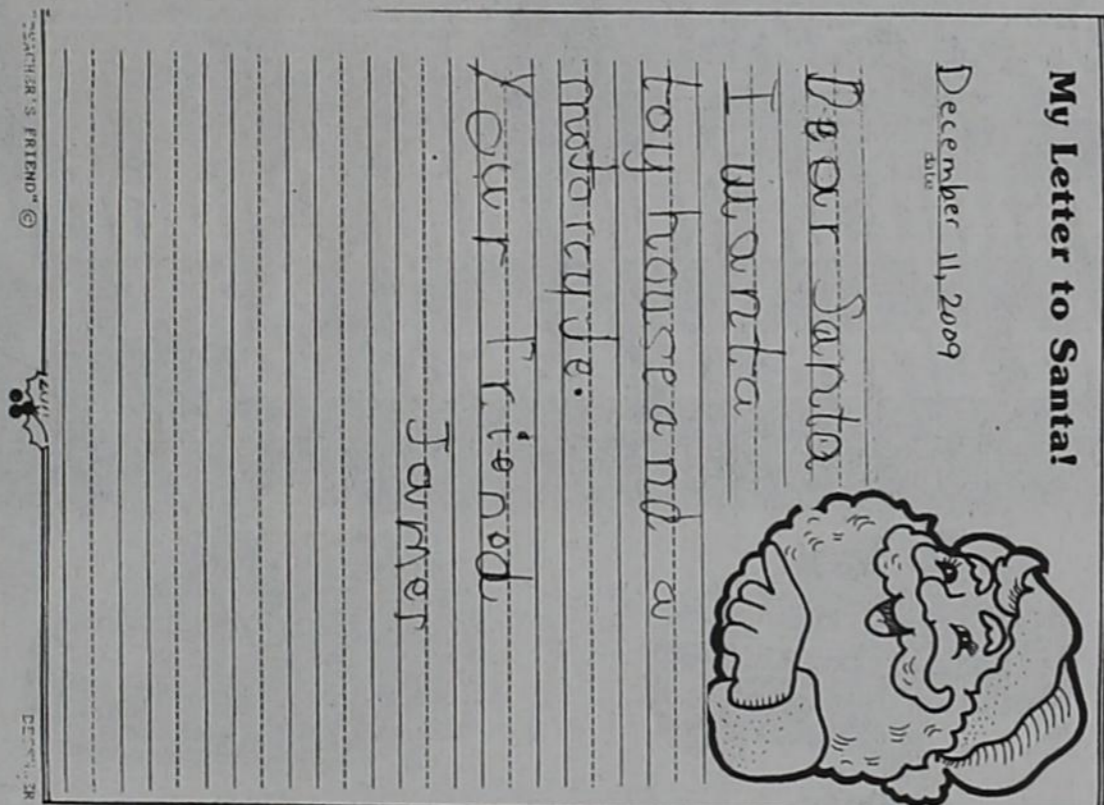 My Letter to Santa!
December 11, 2009
date
Dear Santa
I want a
toy house and a
motorcycle.
Your Friend
"TEACHER'S FRIEND" ©